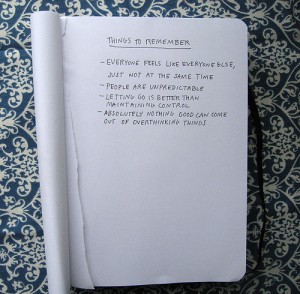 THINGS TO REMEMBER
- EVERYONE FEELS LIKE EVERYONE ELSE,
JUST NOT AT THE SAME TIME
- PEOPLE ARE UNPREDICTABLE
- LETTING GO IS BETTER THAN
MAINTAINING CONTROL
- ABSOLUTELY NOTHING GOOD CAN COME
OUT OF OVERTHINKING THINGS